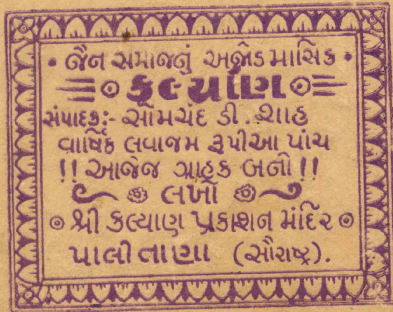 • જૈન સમાજનું અજોડ માસિક •
કલ્યાણ
સંપાદક:- સોમચંદ ડી. શાહ
વાર્ષિક લવાજમ રૂપીઆ પાંચ
!! આજેજ ગ્રાહક બનો !!
લખો
શ્રી કલ્યાણ પ્રકાશન મંદિર
પાલીતાણા (સૌરાષ્ટ્ર).